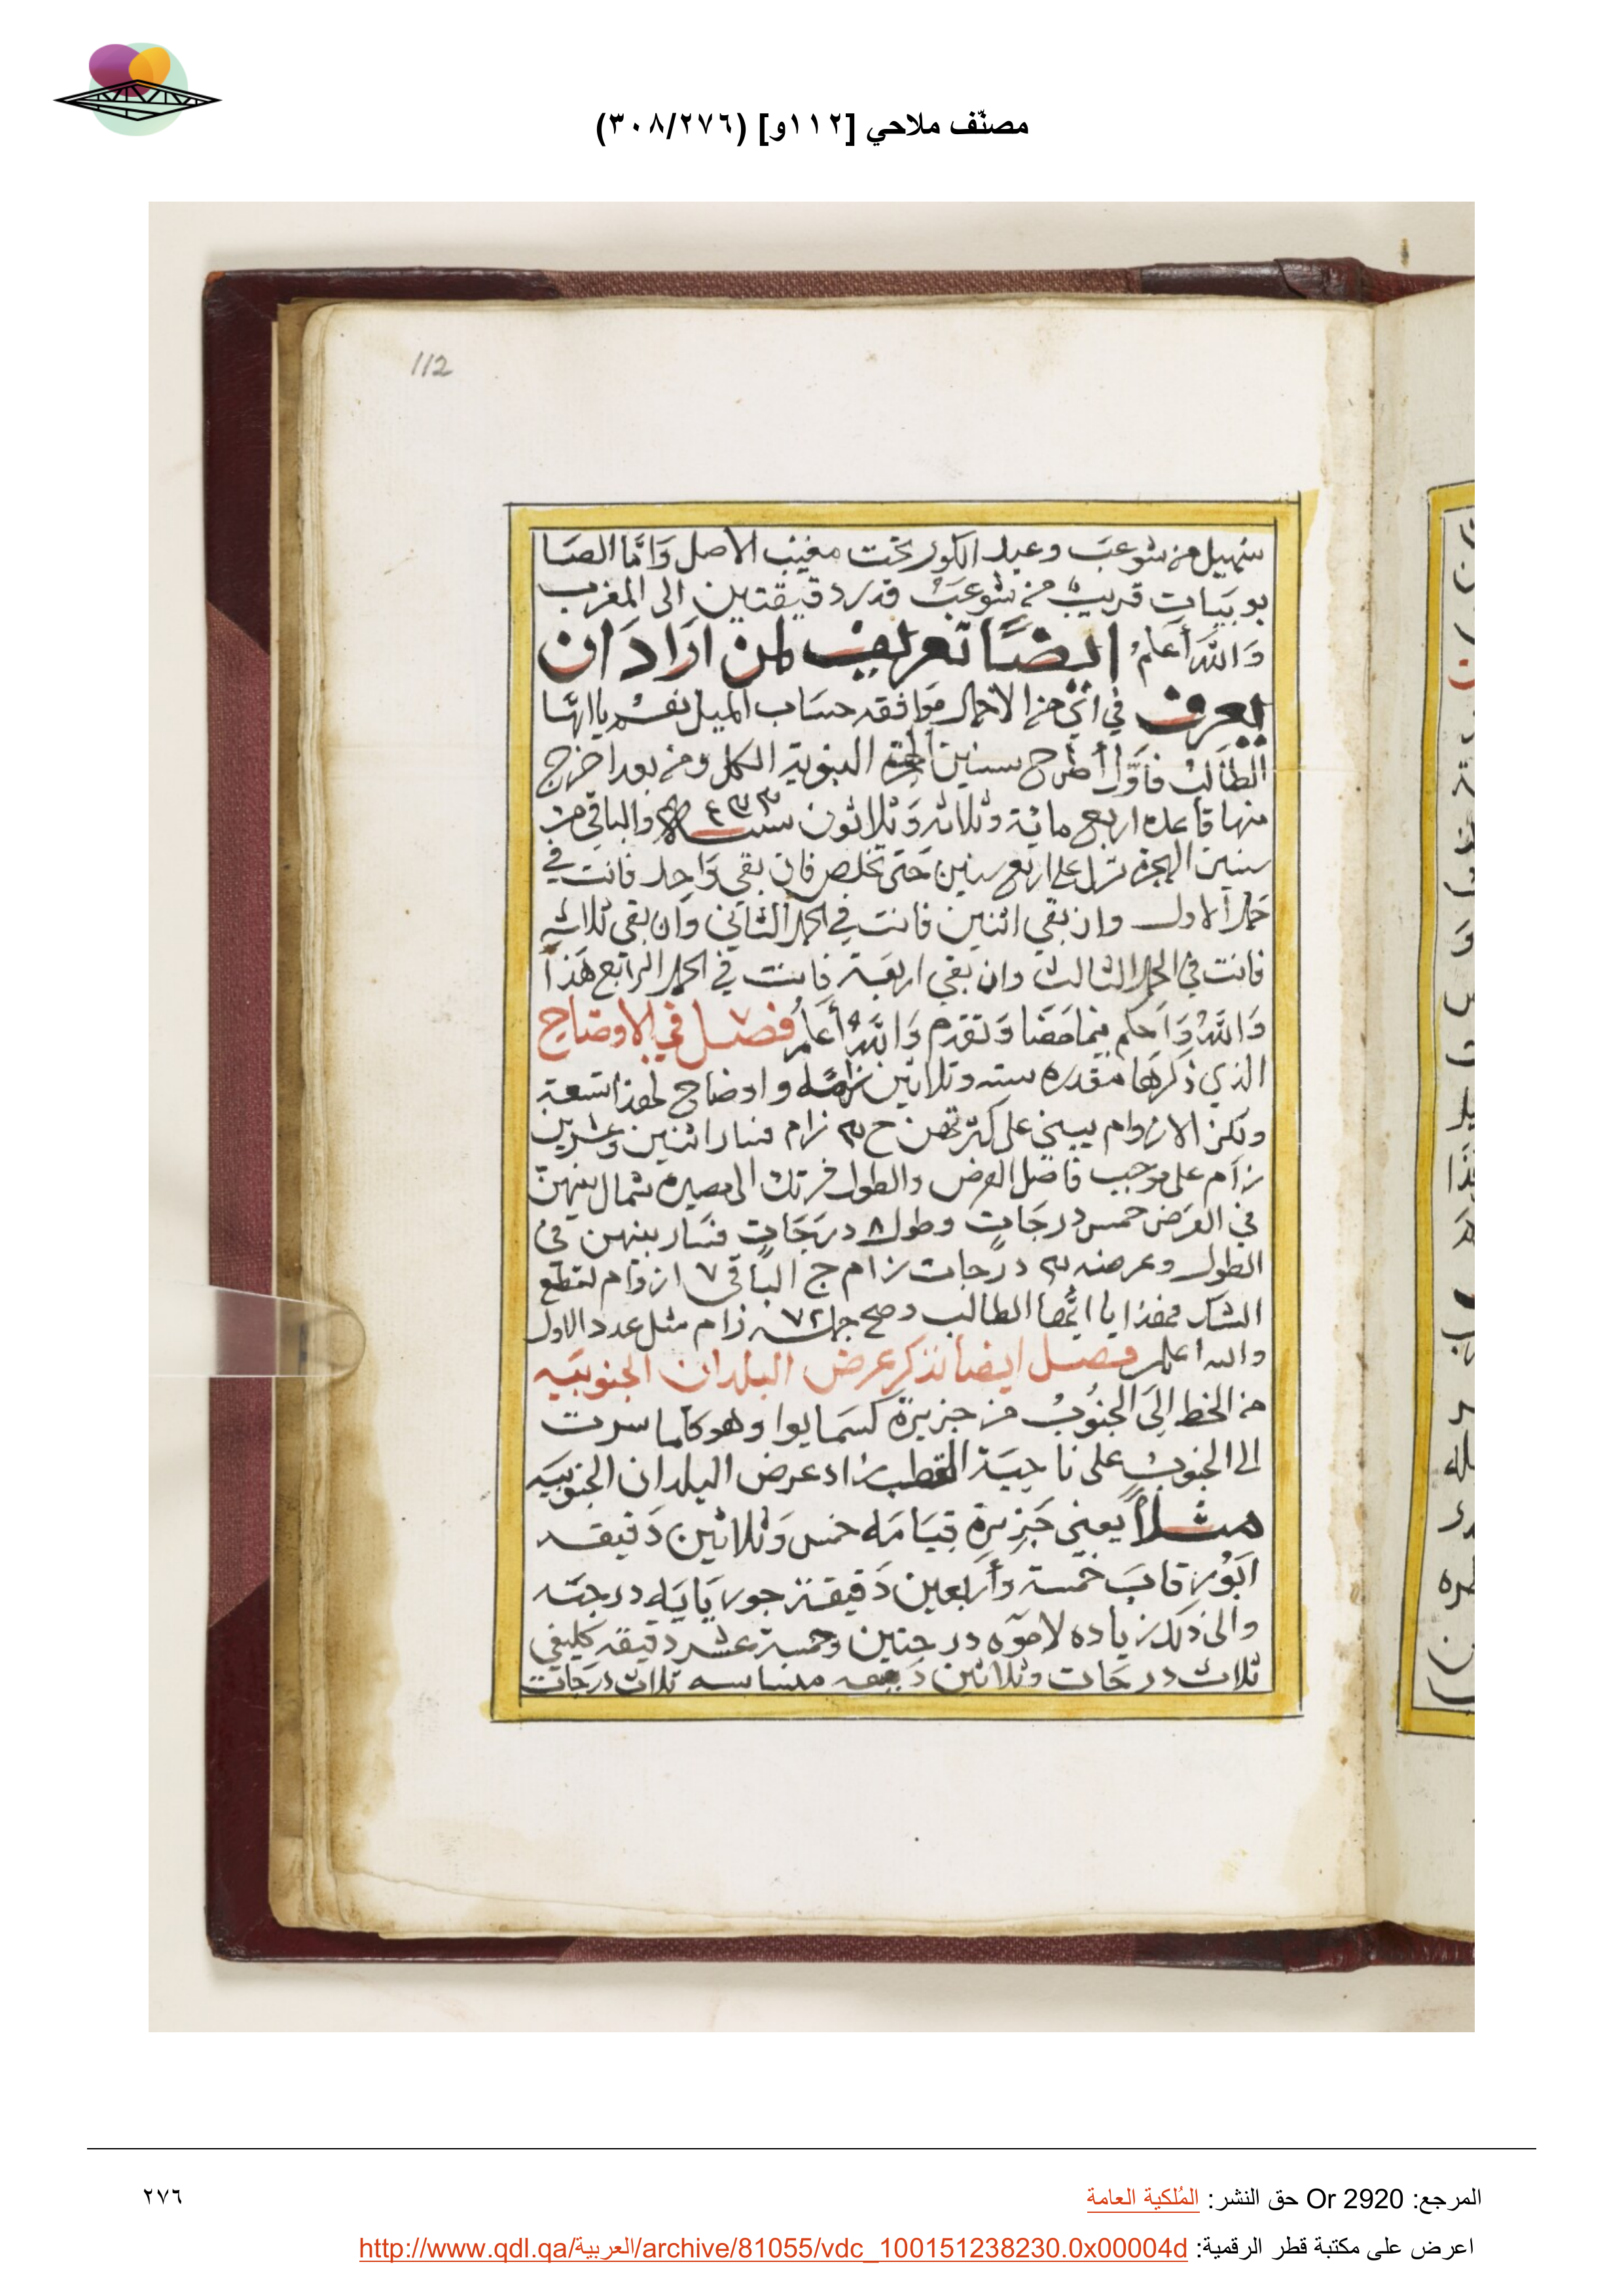 مصنّف ملاحي [١١٢و] (٣٠٨/٢٧٦)
112
سهيل من شوعب وعبد الكور تحت مغيب الاصل وَامَّا الصَا
بو بيات قريب من شوعب قدر دقيقتين الى المغرب
وَاللهُ أَعلمُ ايضًا تعريف لمن ارَادَ ان
يعرف في اي من الاحمال موافقه حسَاب الميل نفسه يا ايها
الطَالب فاوَّل أطرح سنين الهجرة النبوية الكل ومن بعد اخرج
منها قاعده اربع ماية وثلاثه وَثلاثون سنه ٤٣٣ والباقي من
سنين الهجرة نزل على اربع سنين حَتى تخلص فان بقي وَاحد فانت في
حمل الاول وان بقي اثنين فانت في الحمل الثاني وان بقي ثلاثه
فانت في الحمل الثالث وان بقي اربعَة فانت في الحمل الرابع هَذا
وَاللهُ وَاحكم بما مَضَا وَتقدم وَاللهُ أَعلمُ فصل في الاوضاح
الذي ذكرها مقدره سته وثلاثين واوضاح لهذا تسعة
ولكن الازوام يبني على كثرتهن زام فسار اثنين وعشرين
زام على موجب فاصل العرض والطول فرتك الى مصيره شمال بينهن
في العرَض خمس درجَاتٍ وطول ٨ درجَاتٍ فسَار بينهن في
الطول وعرضه درجات زام ج البَاقي ٧ ازوام لقطع
الشك فهذا يا ايُّها الطالب وصح جملته ٧٢ زام مثل عدد الاول
والله اعلم فصل ايضا نذكر عرض البلدان الجنوبيَه
من الخط الى الجنُوبُ من جزيرة كسمايوا وهو كلما سرت
الى الجنوب على ناحيَة القطب زاد عرض البلدان الجنوبيَه
مثلاً يعني جَزِيرة قيَامَه خمس وَثلاثين دَقيقه
ابَوُرقابَ خمسة وأربعين دَقيقة جورَيَايَه درجَه
والى ذلك زياده لاموه درجتين وخمسة عشر دقيقه كليفي
ثلاث درجات وثلاثين دقيقه منباسه ثلاث درجَات
المرجع: Or 2920 حق النشر: المُلكية العامة
٢٧٦
اعرض على مكتبة قطر الرقمية: http://www.qdl.qa/العربية/archive/81055/vdc_100151238230.0x00004d